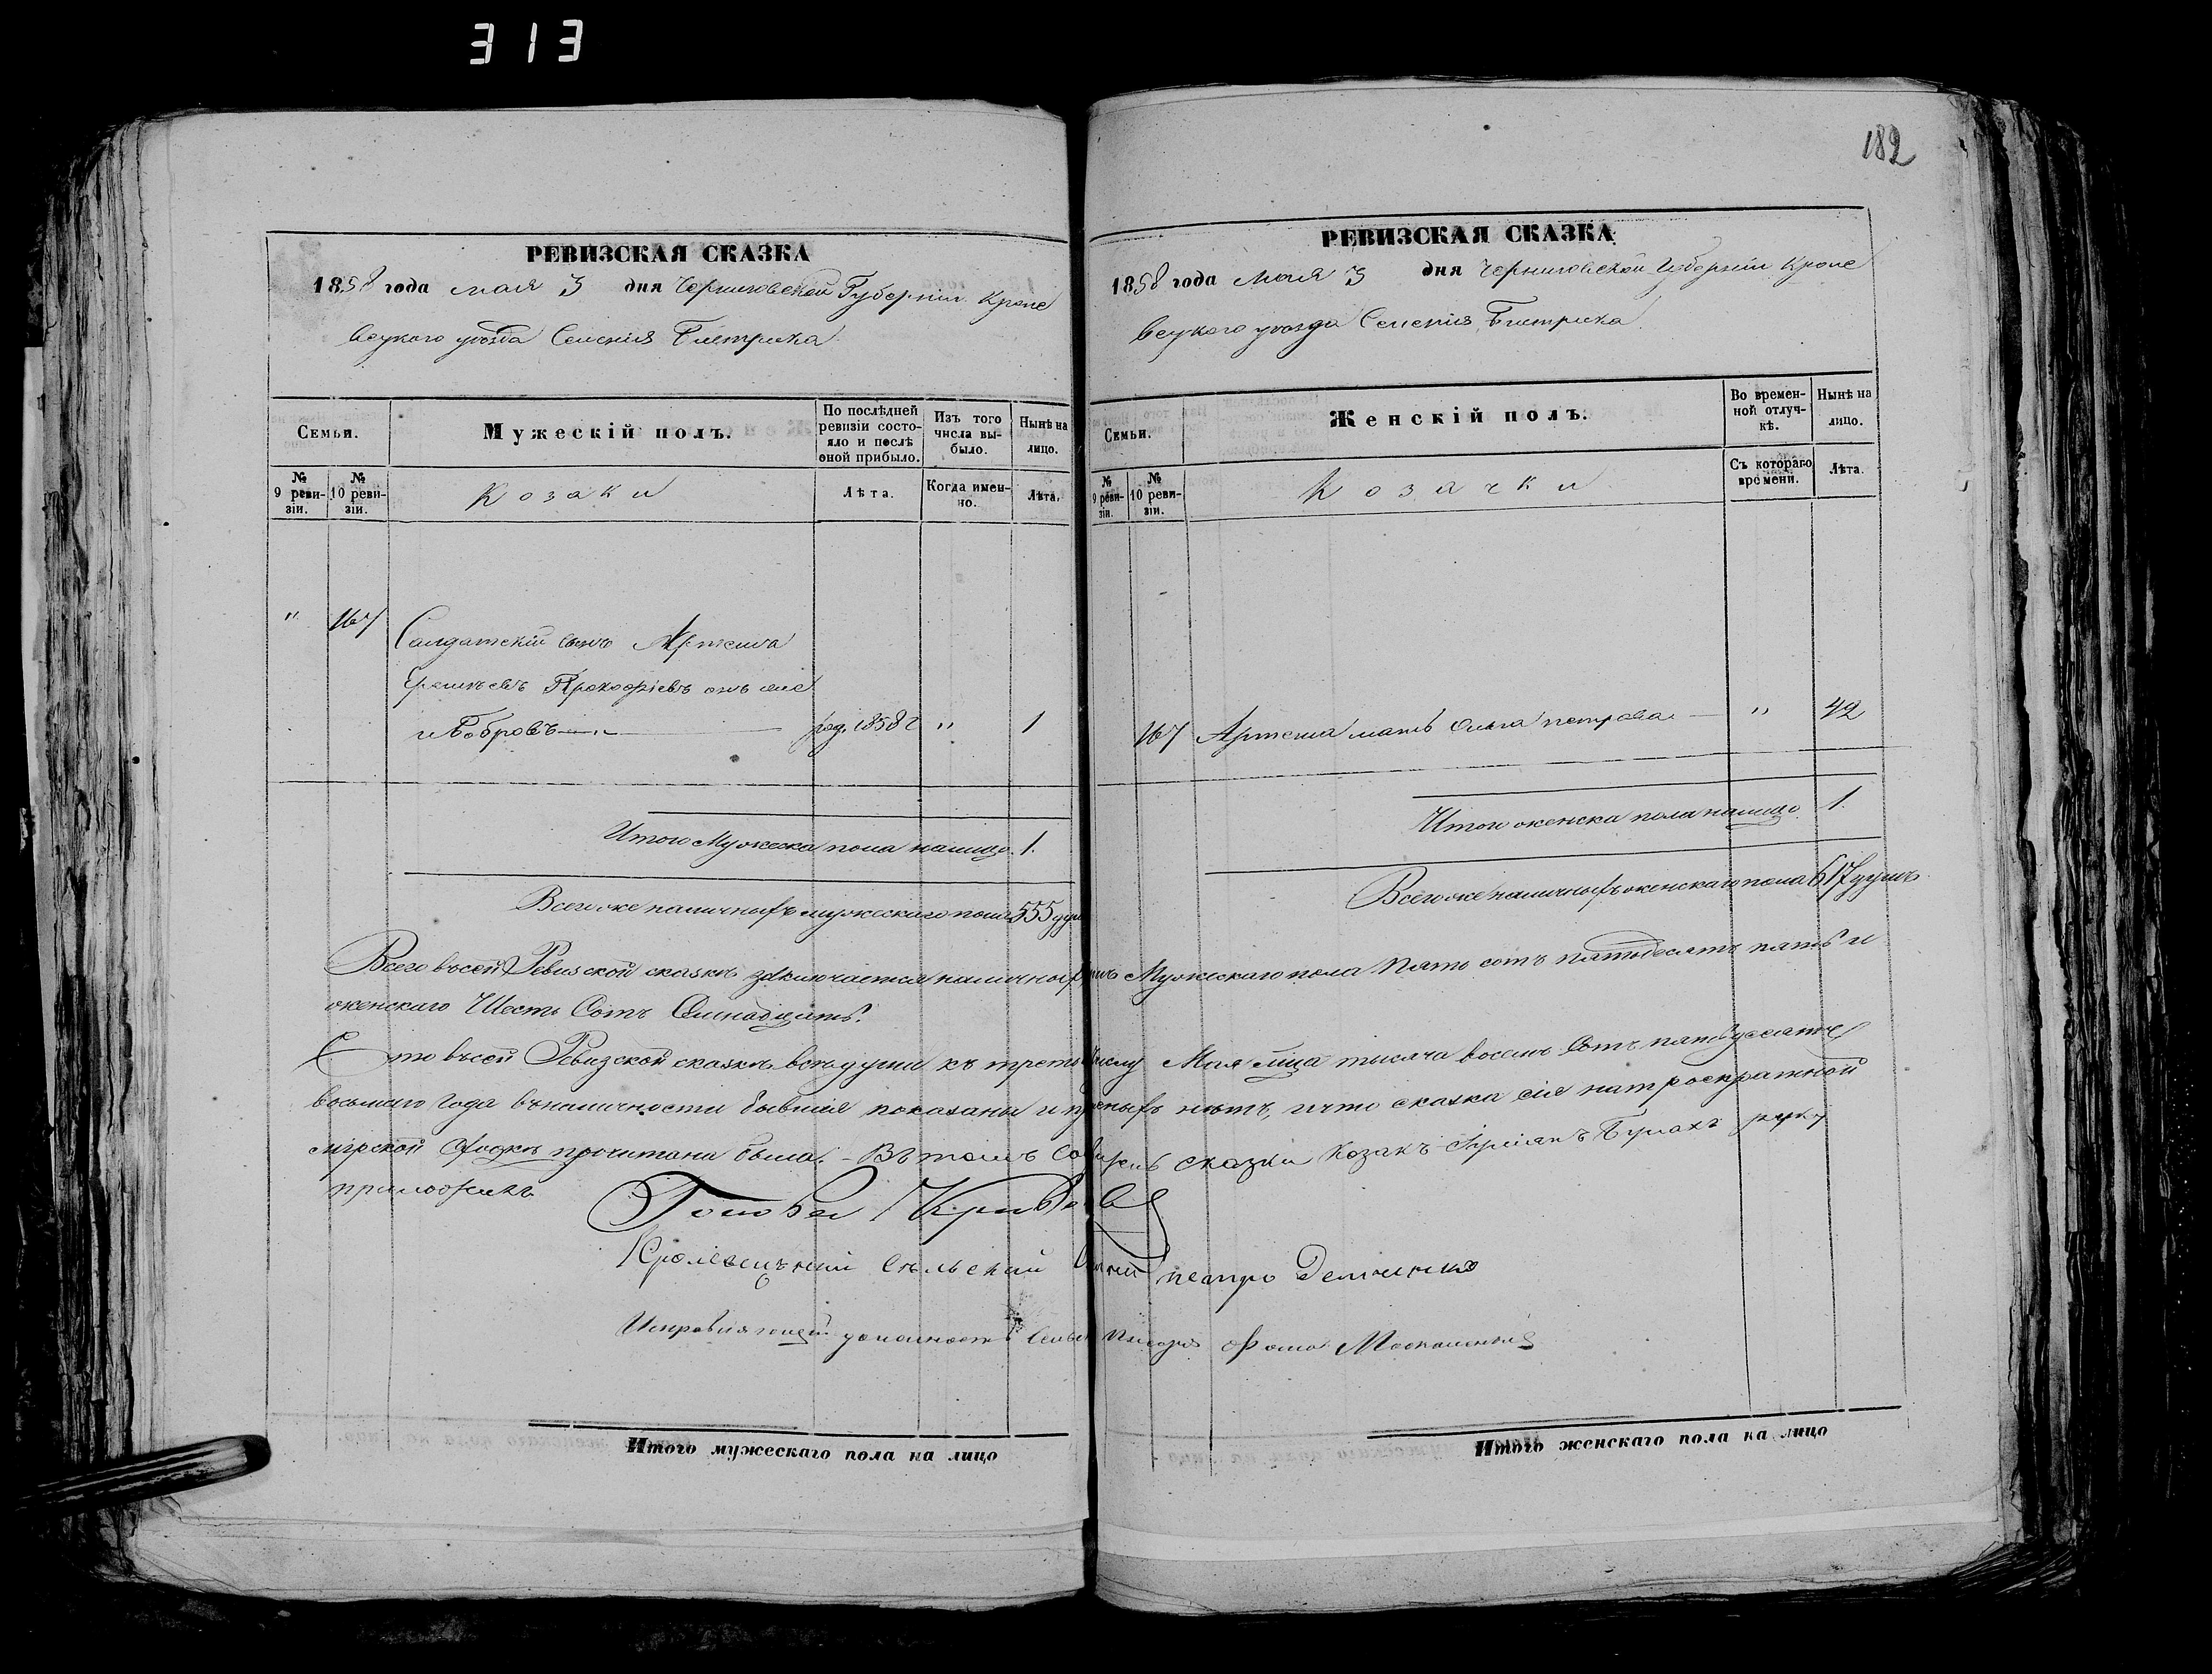 313
182
РЕВИЗСКАЯ СКАЗКА
1858 года мая 3 дня Черниговской Губернiи Кроле
вецкого уѣзда Селенiя Бистрика
Семьи.
Мужескiй полъ.
По послѣдней ревизiи состояло и послѣ оной прибыло.
Изъ того числа выбыло.
Нынѣ на лицо.
№ 9 ревизiи.
№ 10 ревизiи.
Козаки
Лѣта.
Когда именно.
Лѣта.
" 167
Салдатскiй сынъ Артема
Прокофiевъ онъ же
и Бобровъ — род. 1858 г " 1
Итого Мужеска пола налицо. 1.
Всего же наличныхъ мужескаго пола 555 душ
РЕВИЗСКАЯ СКАЗКА
1858 года Мая 3 дня Черниговской Губернiи Кроле
вецкого уѣзда Селенiя Бистрика.
Семьи.
Женскiй полъ.
Во временной отлучкѣ.
Нынѣ на лицо.
№ 9 ревизiи.
№ 10 ревизiи.
Козачки
Съ котораго времени.
Лѣта.
167 Артема мать Ольга петрова — " 42
Итого женска пола налицо. 1.
Всего же наличныхъ женскаго пола 617 душъ
Всего въсей Ревизской сказкѣ заключается наличныхъ Мужескаго пола Пять сотъ пятьдесятъ пять и
женскаго Шесть Сотъ Семнадцать.
что въсей Ревизской сказкѣ всѣ души къ третьему числу Мая мца тысяча восемь Сотъ пятьдесятъ
восьмаго года въналичности бывшiе показаны и нѣтъ, и что сказка сiя на троекратной
мiрской сходкѣ прочитана была. – Въ томъ сказки Козакъ руку
приложилъ
Голова
Кролевецкий сельскiй петро Демченко
Исправляющiй должность Писаря Фома Москаленко
Итого мужескаго пола на лицо
Итого женскаго пола на лицо